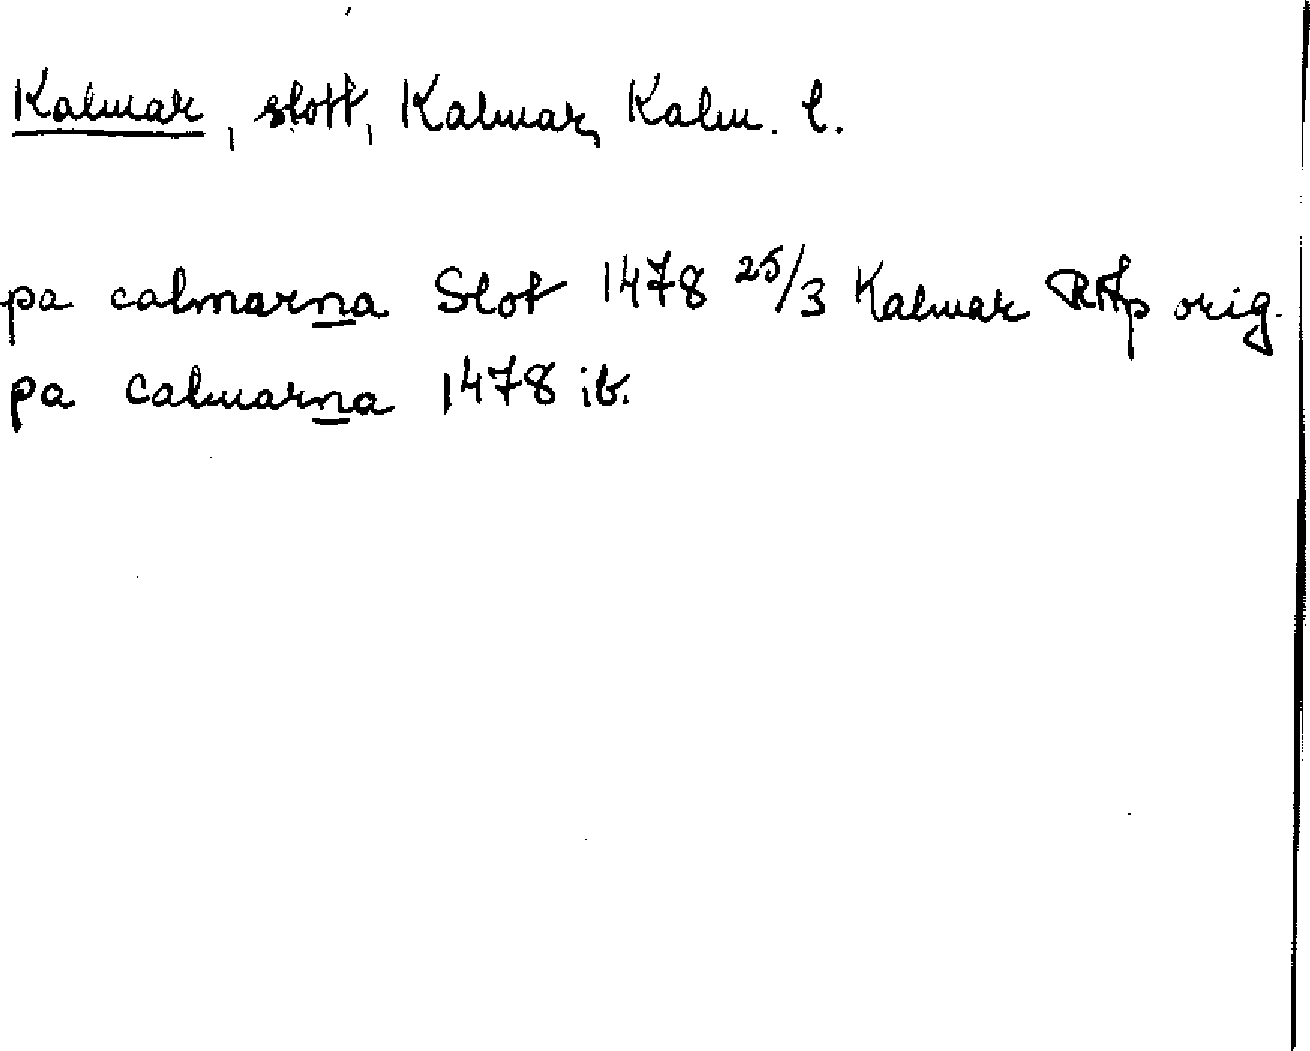 Kalmar, slott, Kalmar, Kalm. l.
pa calmarna Slot 1478 25/3 Kalmar RAp orig.
pa calmarna 1478 ib.